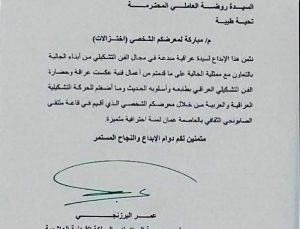 السيدة روضة العاملي المحترمة
تحية طيبة
م/ مباركة لمعرضكم الشخصي (اختزالات)
نثمن هذا الإبداع لسيدة عراقية مبدعة في مجال الفن التشكيلي من أبناء الجالية
بالتعاون مع ممثلية الجالية على ما قدمتم من أعمال فنية عكست عراقة وحضارة
الفن التشكيلي العراقي بطابعه وأسلوبه الحديث وما أضفتم للحركة التشكيلية
العراقية والعربية من خلال معرضكم الشخصي الذي أقيم في قاعة ملتقى
الصابونجي الثقافي بالعاصمة عمان لمسة احترافية متميزة.
متمنين لكم دوام الإبداع والنجاح المستمر
عمر البرزنجي